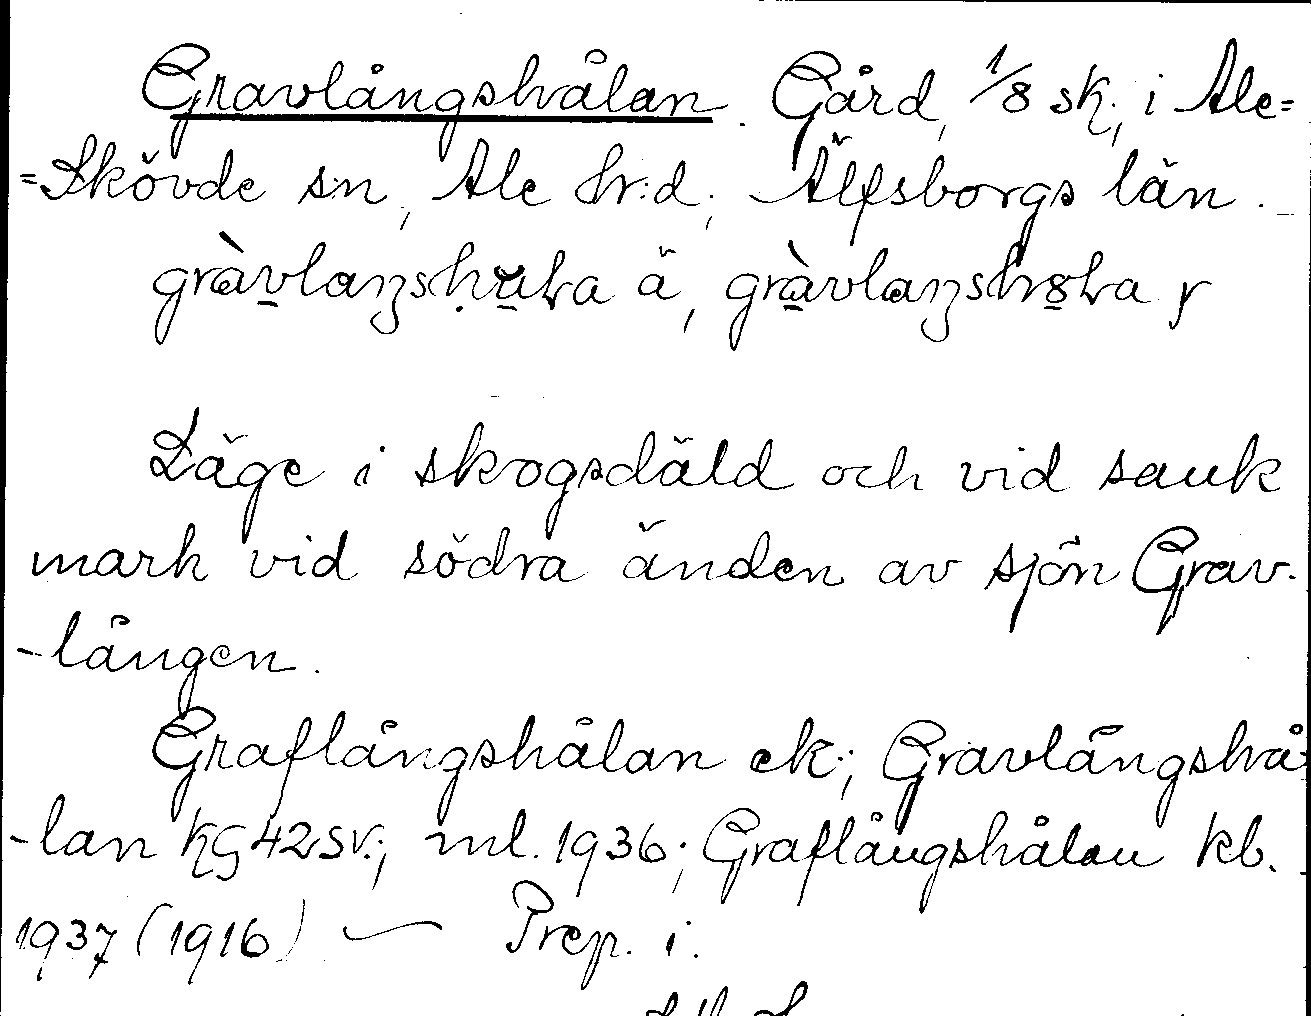 Gravlångshålan. Gård, 1/8 sk., i Ale=
=Skövde sn, Ale hr:d, Älfsborgs län.
gràvlaŋshɷɫa ä, gràvlaŋshɷɫa y
Läge i skogsdäld och vid sank
mark vid södra änden av sjön Grav-
-lången.
Graflångshålan ek.; Gravlångshå-
-lan KG 42SV.; ml. 1936; Graflångshålan kb.
1937 (1916) — Prep. i.